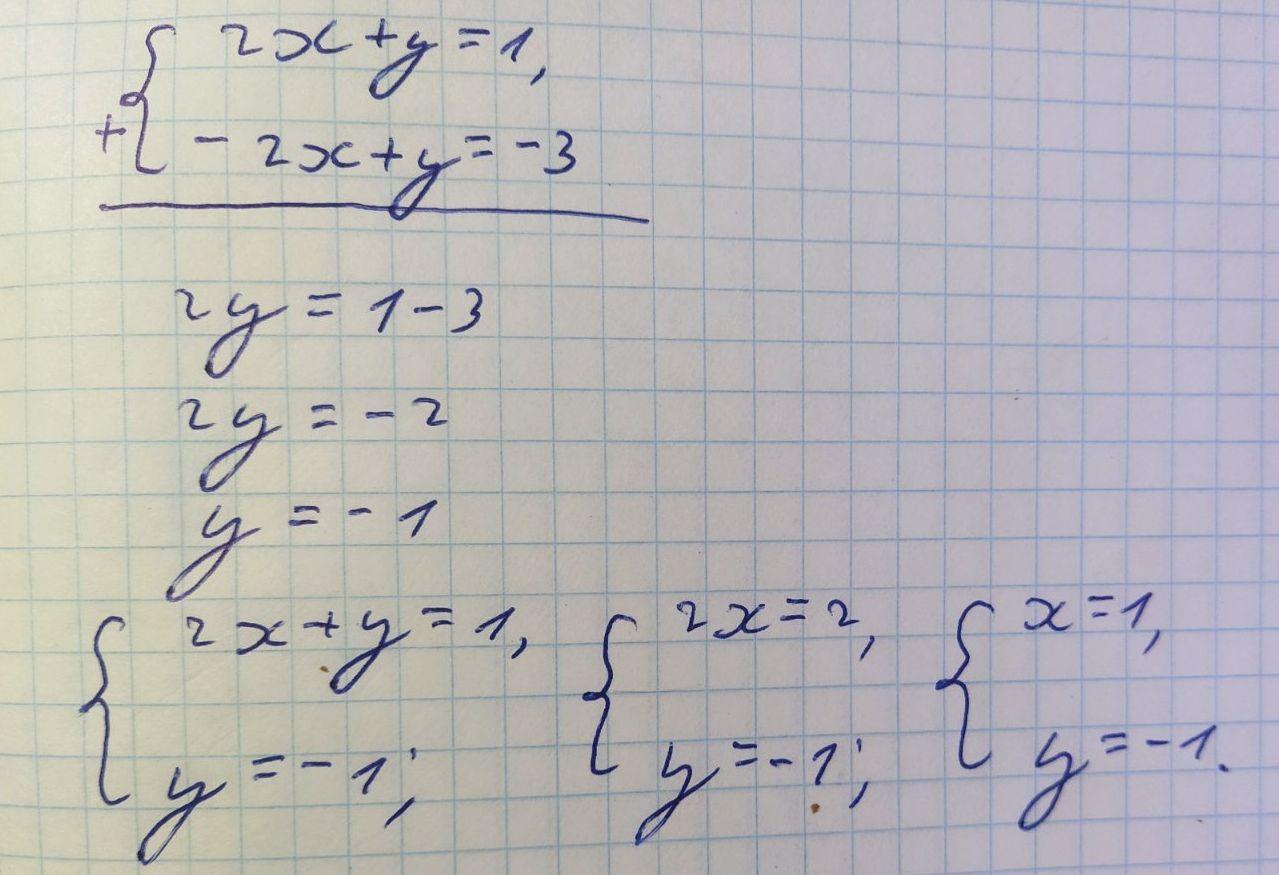 2x+y=1,
+ -2x+y=-3
2y = 1-3
2y = -2
y = -1
{ 2x+y=1, { 2x=2, { x=1,
y=-1; y=-1; y=-1.